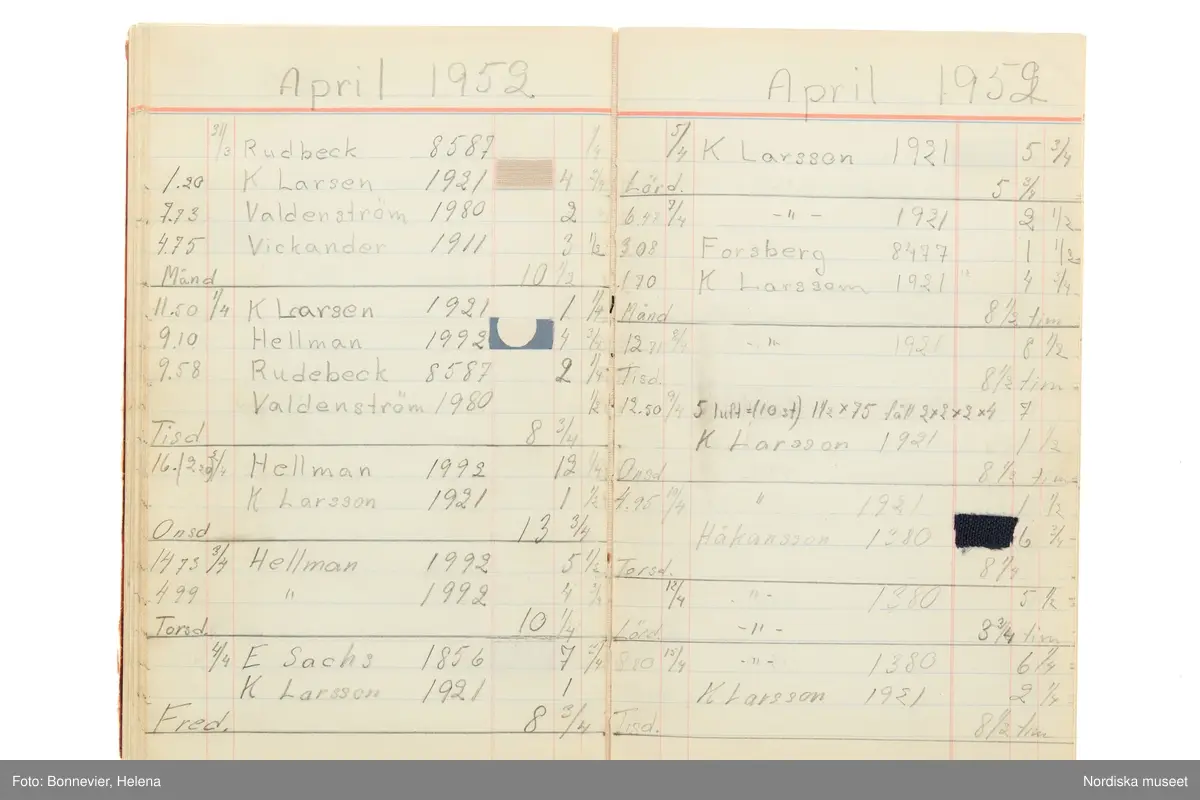 April 1952
31/3 Rudbeck 8587 1/4
1.20 K Larsen 1921 4
7.73 Valdenström 1980 2
4.75 Vickander 1911 3 1/2
Månd 10 1/2
11.50 1/4 K Larsen 1921 1 1/4
9.10 Hellman 1992 4
9.58 Rudebeck 8587 2 1/4
Valdenström 1980 1/2
Tisd 8 3/4
Hellman 1992 12 1/4
K Larsson 1921 1 1/2
Onsd 13 3/4
14.73 3/4 Hellman 1992 5 1/2
4.99 " 1992 4
Torsd. 10 1/4
4/4 E Sachs 1856 7
K Larsson 1921 1
Fred. 8 3/4
April 1952
5/4 K Larsson 1921 5 3/4
Lörd. 5 3/4
-"- 1921 2 1/2
3.08 Forsberg 8477 1 1/2
1.70 K Larssom 1921 " 4
Månd 8 1/2 tim
-"- 1921 8 1/2
Tisd. 8 1/2 tim
12.50 9/4 5 luft=(10 st) 1 1/2 × 75 fåll 2×2×2×4 7
K Larsson 1921 1 1/2
Onsd 8 1/2 tim
4.95 10/4 " 1921 1 1/2
Håkansson 1380 6 3/4
Torsd. 8
12/4 -"- 1380 5 1/2
Lörd. -"- 3 3/4 tim
15/4 -"- 1380 6 1/4
K Larsson 1921 2 1/4
Tisd. 8 1/2 tim
Foto: Bonnevier, Helena
Nordiska museet